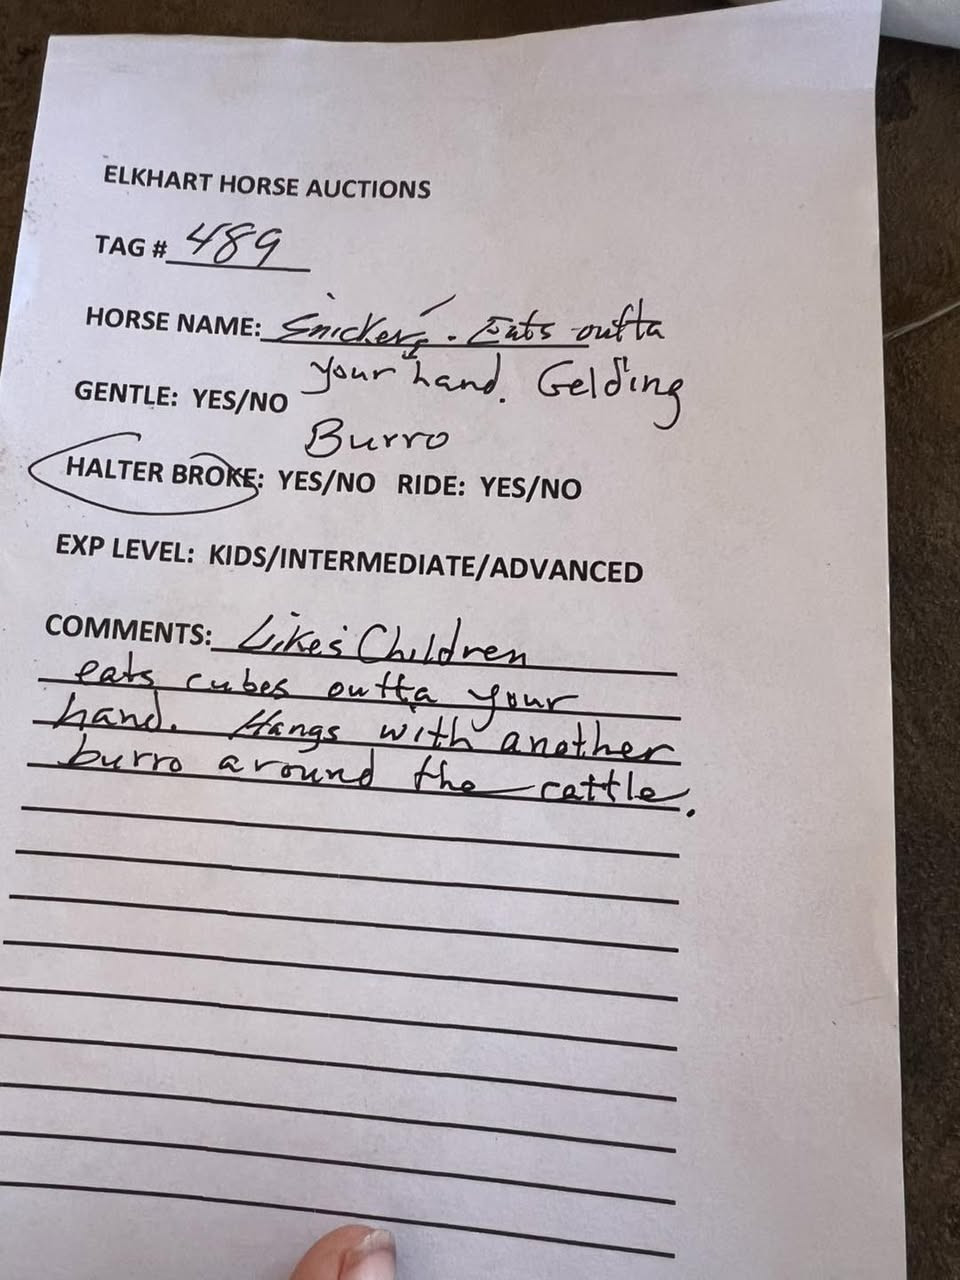 ELKHART HORSE AUCTIONS
TAG # 489
HORSE NAME: Snickers. Eats outta
your hand. Gelding
GENTLE: YES/NO
Burro
HALTER BROKE: YES/NO RIDE: YES/NO
EXP LEVEL: KIDS/INTERMEDIATE/ADVANCED
COMMENTS: Likes Children
eats cubes outta your
hand. Hangs with another
burro around the cattle.